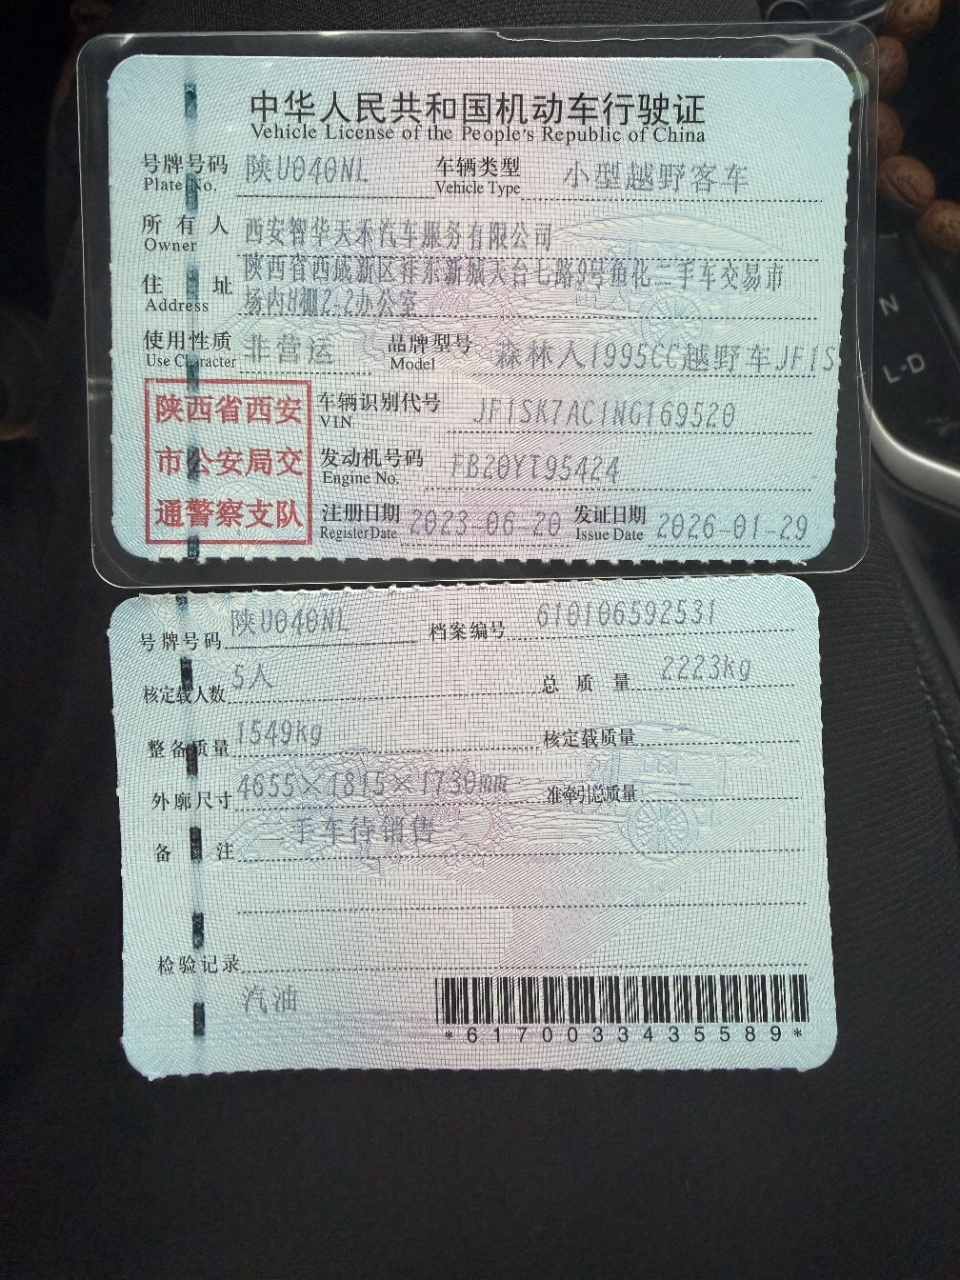 中华人民共和国机动车行驶证
Vehicle License of the People's Republic of China
号牌号码 陕U040NL 车辆类型 小型越野客车
Plate No. Vehicle Type
所有人 西安智华天禾汽车服务有限公司
Owner
住址 陕西省西咸新区沣东新城天台七路9号鱼化二手车交易市
Address 场内H棚2-2办公室
使用性质 非营运 品牌型号 森林人1995CC越野车JF1S
Use Character Model
陕西省西安 车辆识别代号 JF1SK7AC1NG169520
VIN
市公安局交 发动机号码 FB20YT95424
Engine No.
通警察支队 注册日期 2023-06-20 发证日期 2026-01-29
Register Date Issue Date
号牌号码 陕U040NL 档案编号 610106592531
核定载人数 5人 总质量 2223kg
整备质量 1549kg 核定载质量
外廓尺寸 4655×1815×1730mm 准牵引总质量
备注 二手车待销售
检验记录
汽油
*6170033435589*
N
L-D